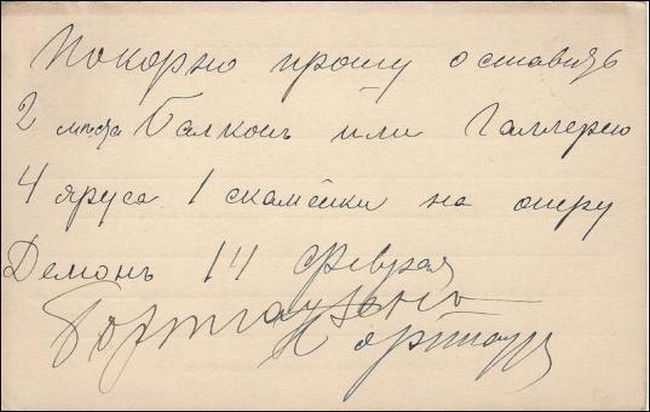 Покорно прошу оставить
2 мѣста Балконъ или Галлерею
4 яруса 1 скамейки на оперу
Демонъ 14 Февраля